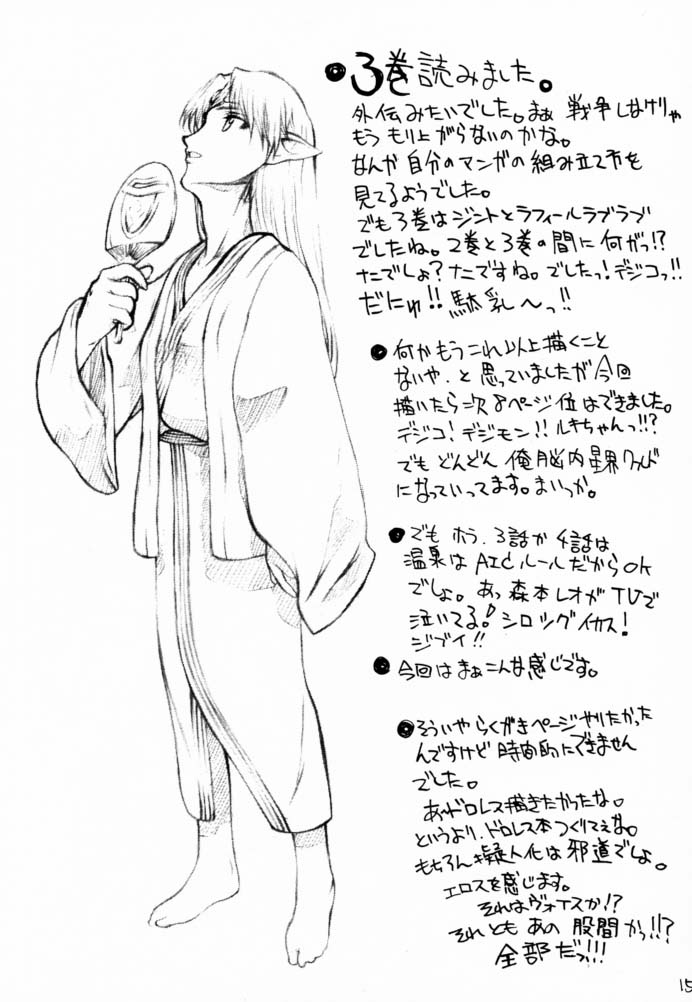 ●3巻読みました。
外伝みたいでした。まぁ 戦争しなけりゃ
もう もり上がらないのかな。
なんか 自分のマンガの組み立て方を
見てるようでした。
でも3巻はジントとラフィールラブラブ
でしたね。2巻と3巻の間に何がっ!?
なでしょ?なですね。でしたっ!デジコっ!!
だにゅ!!駄乳〜っ!!
●何かもうこれ以上描くこと
ないや.と思っていましたが今回
描いたら 8ページ位はできました。
デジコ!デジモン!!ルキちゃんっ!!?
でもどんどん 俺脳内星界ワールド
になっていってます。まいっか。
●でもホラ.3話か4話は
温泉はAICルールだからok
でしょ。あっ 森本レオがTVで
泣いてる!シロツグイカス!
ジブイ!!
●今回はまぁこんな感じです。
●そういやらくがきページやりたかった
んですけど 時間的にできません
でした。
あ、ドロレス描きたかったな。
というより.ドロレス本つくりてぇな。
もちろん擬人化は邪道でしょ。
エロスを感じます。
それはヴォイスか!?
それとも あの 股間かっ!!?
全部だっ!!!
15